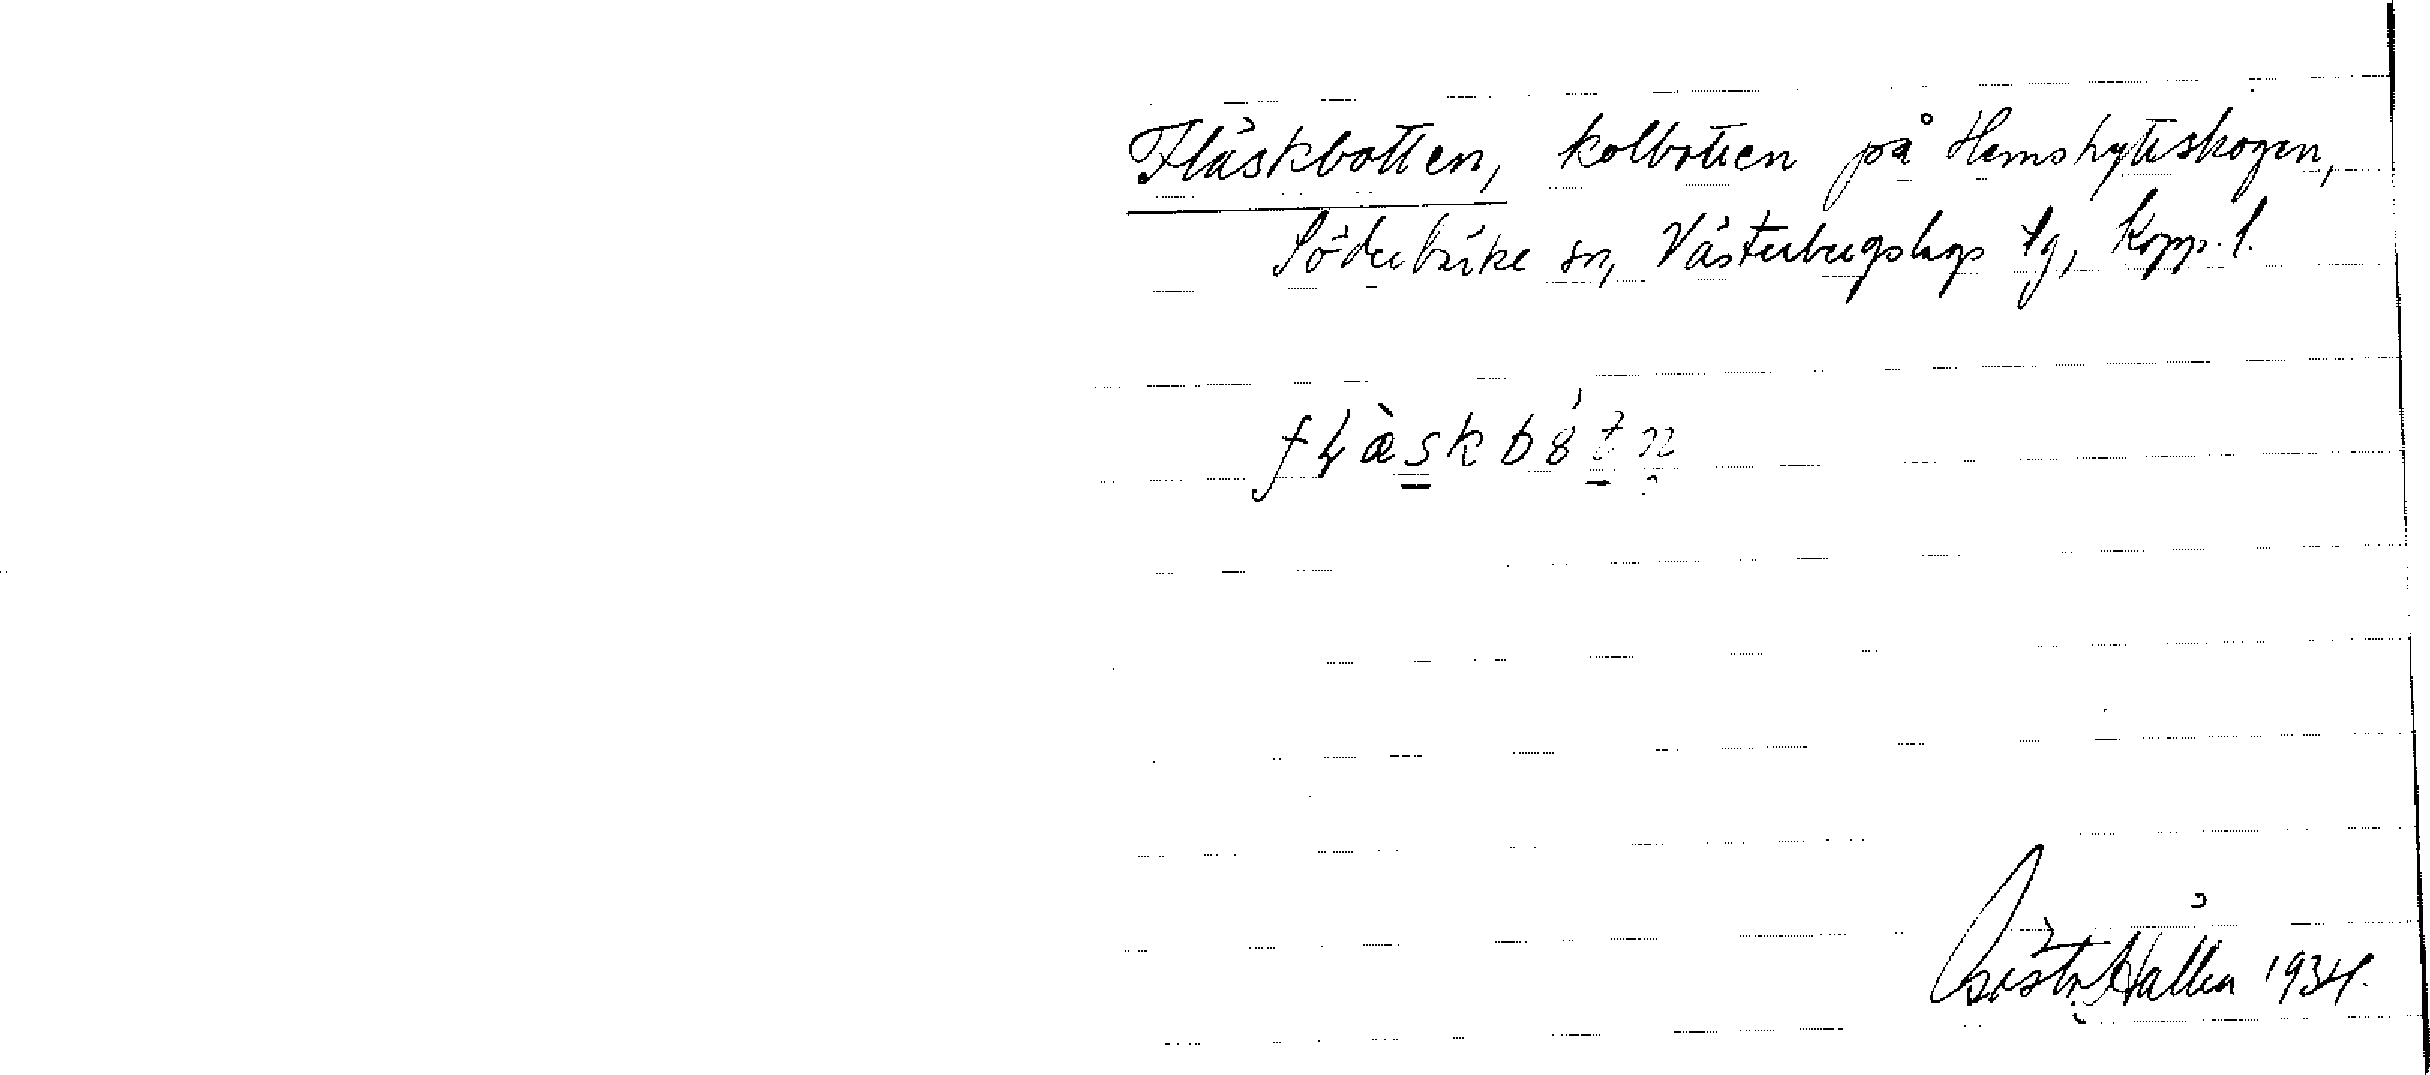 Fläskbotten, kolbotten på Hemshytteskogen,
Söderbärke sn, Västerbergslags tg, Kopp. l.
fɬæ̀skb8́tn̥
Gösta Hallén 1934.